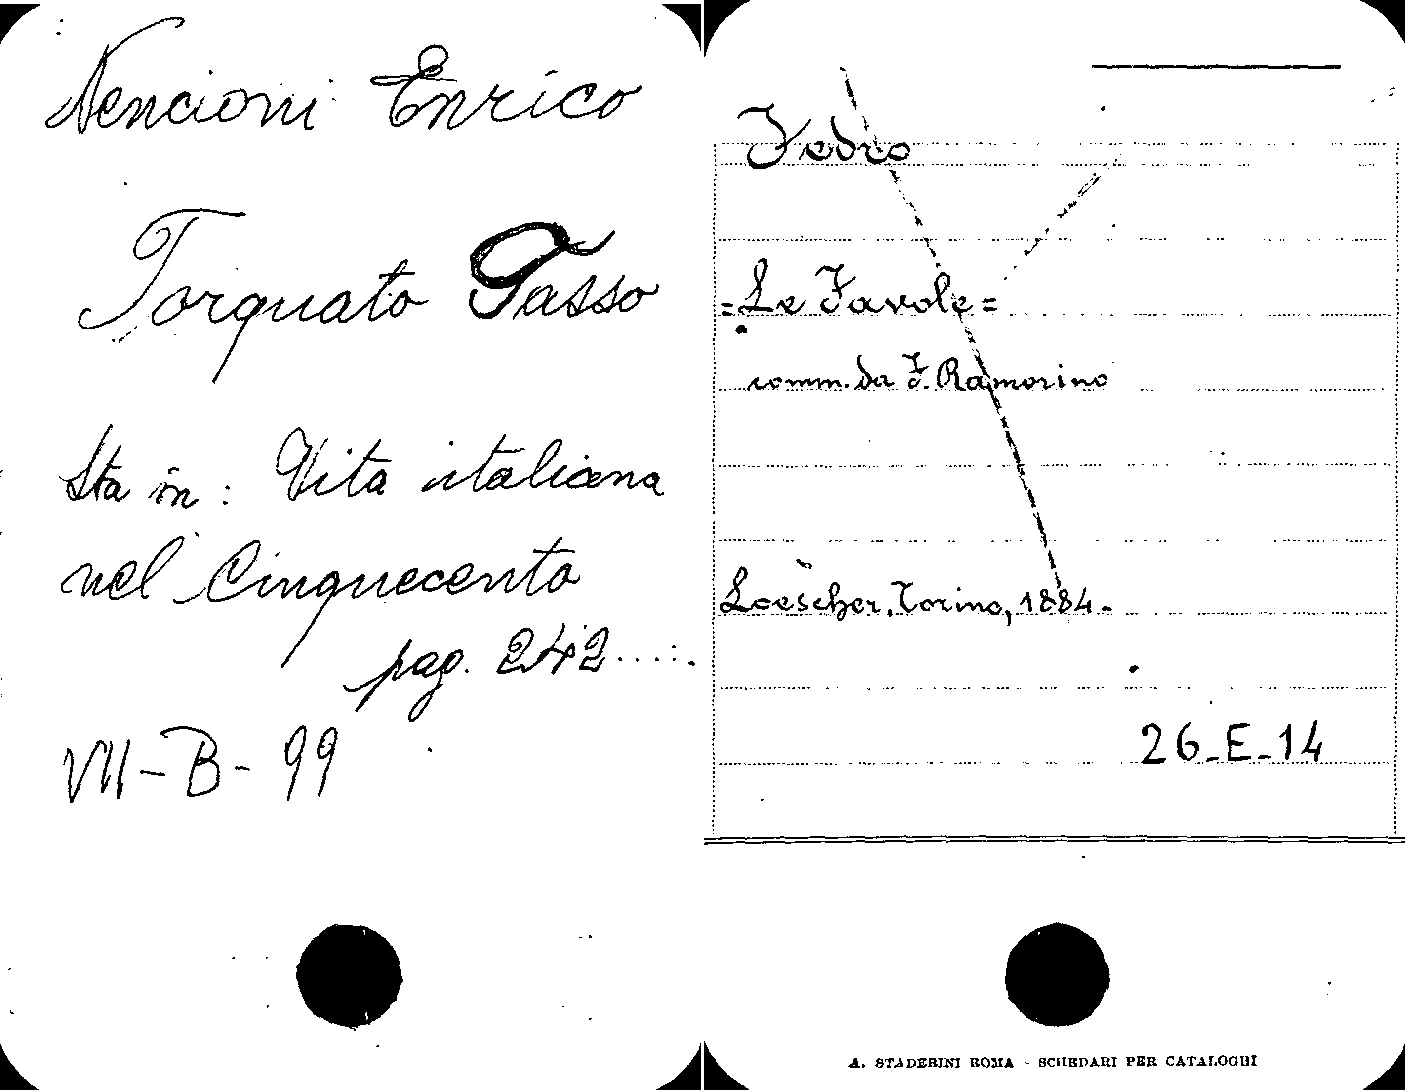 Nencioni Enrico
Torquato Tasso
Sta in: Vita italiana
nel Cinquecento
pag. 242....:.
VII-B-99
Fedro
=Le Favole=
comm. da F. Ramorino
Loescher, Torino, 1884.
26-E-14
A. STADERINI ROMA - SCHEDARI PER CATALOGHI